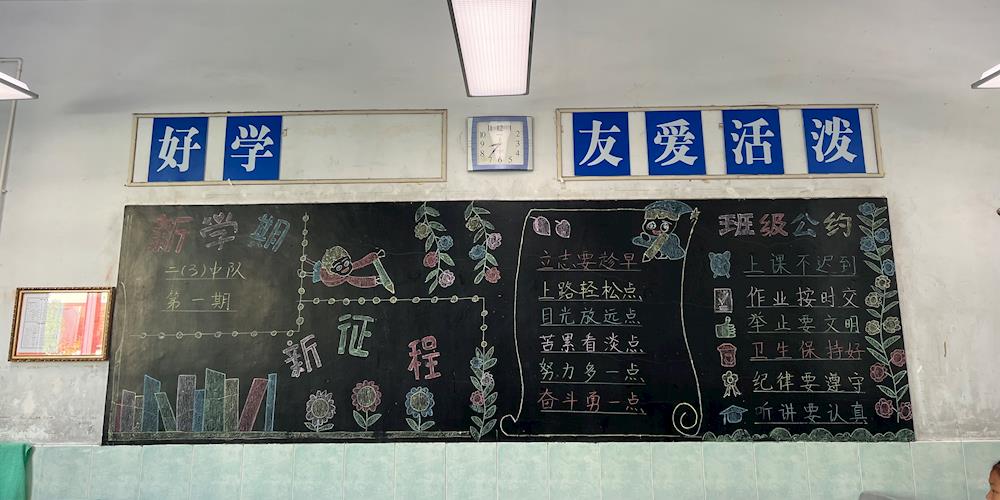 好学
友爱活泼
新学期
二(3)中队
第一期
新征程
立志要趁早
上路轻松点
目光放远点
苦累看淡点
努力多一点
奋斗勇一点
班级公约
上课不迟到
作业按时交
举止要文明
卫生保持好
纪律要遵守
听讲要认真